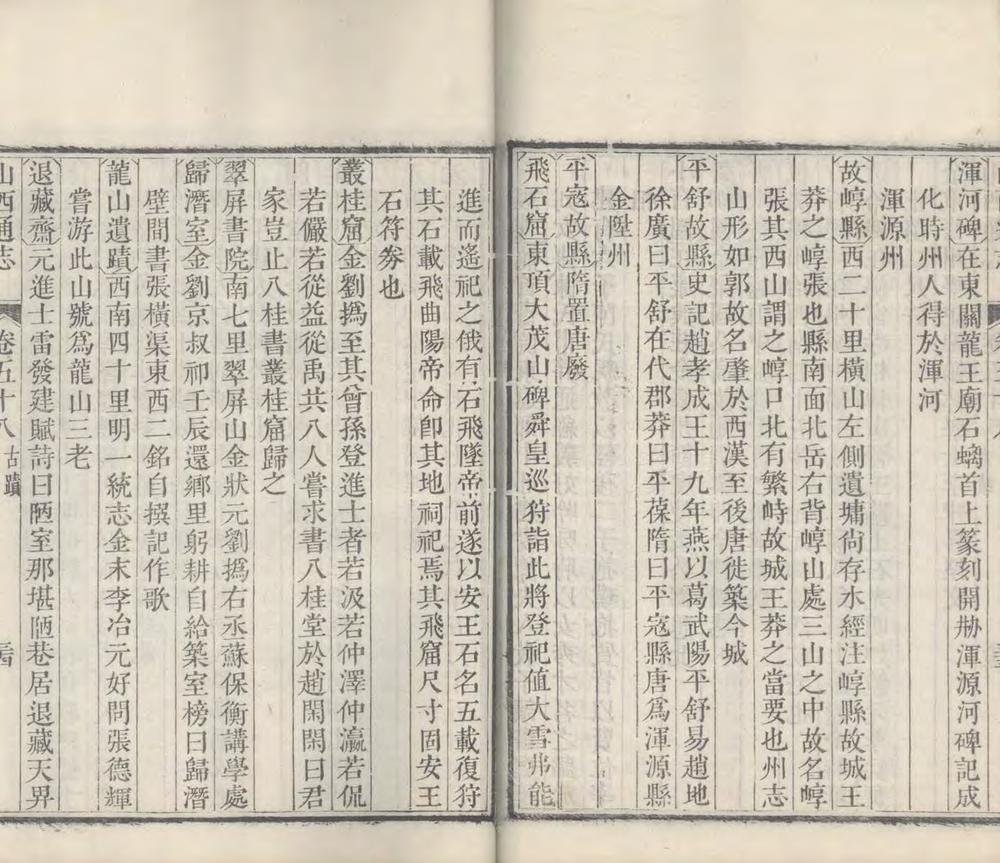 渾河碑在東關龍王廟石螭首上篆刻開刱渾源河碑記成
化時州人得於渾河
渾源州
故崞縣西二十里橫山左側遺墉尙存水經注崞縣故城王
莽之崞張也縣南面北岳右背崞山處三山之中故名崞
張其西山謂之崞口北有繁畤故城王莽之當要也州志
山形如郭故名肇於西漢至後唐徙築今城
平舒故縣史記趙孝成王十九年燕以葛武陽平舒易趙地
徐廣曰平舒在代郡莽曰平葆隋曰平寇縣唐爲渾源縣
金陞州
平寇故縣隋置唐廢
飛石窟東頂大茂山碑舜皇巡狩詣此將登祀值大雪弗能
進而遙祀之俄有石飛墜帝前遂以安王石名五載復狩
其石載飛曲陽帝命卽其地祠祀焉其飛窟尺寸固安王
石符券也
叢桂窟金劉撝至其曾孫登進士者若汲若仲澤仲瀛若侃
若儼若從益從禹共八人嘗求書八桂堂於趙閑閑曰君
家豈止八桂書叢桂窟歸之
翠屏書院南七里翠屏山金狀元劉撝右丞蘇保衡講學處
歸潛室金劉京叔祁壬辰還鄉里躬耕自給築室榜曰歸潛
壁間書張橫渠東西二銘自撰記作歌
龍山遺蹟西南四十里明一統志金末李冶元好問張德輝
嘗游此山號爲龍山三老
退藏齋元進士雷發建賦詩曰陋室那堪陋巷居退藏天畀
山西通志 卷五十八 古蹟